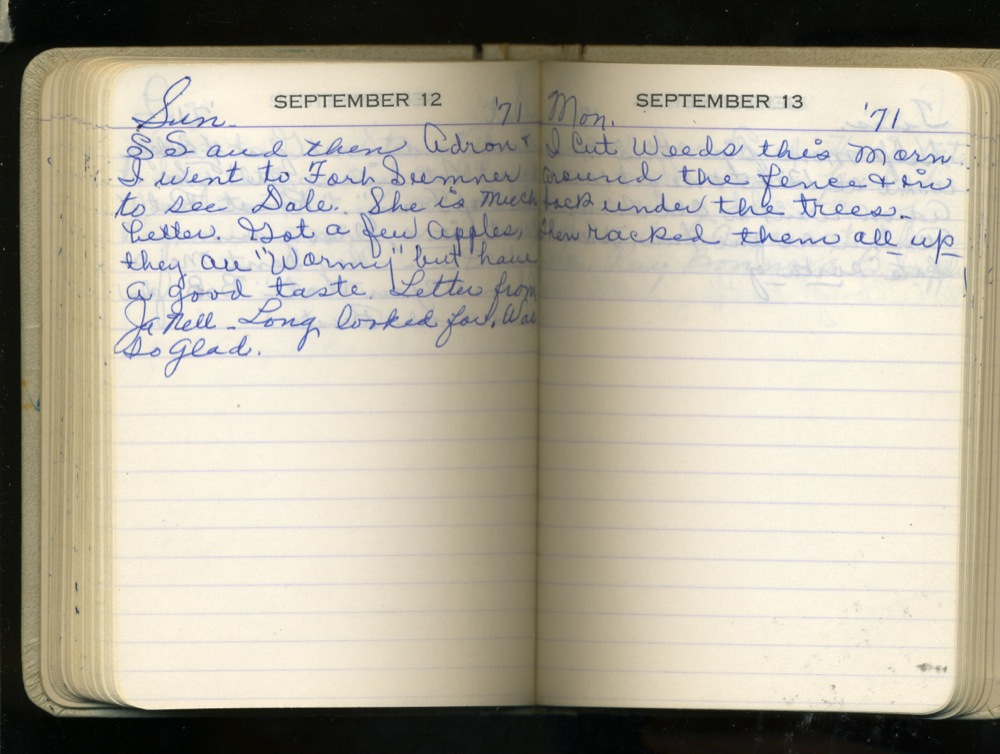 SEPTEMBER 12
Sun. '71
SS and then Adron &
I went to Fort Sumner
to see Dale. She is much
better. Got a few apples,
they are "Wormy" but have
a good taste. Letter from
Ja Nell - Long looked for. Was
so glad.
SEPTEMBER 13
Mon. '71
I Cut Weeds this Morn
around the fence & in
back under the trees.
then racked them all up